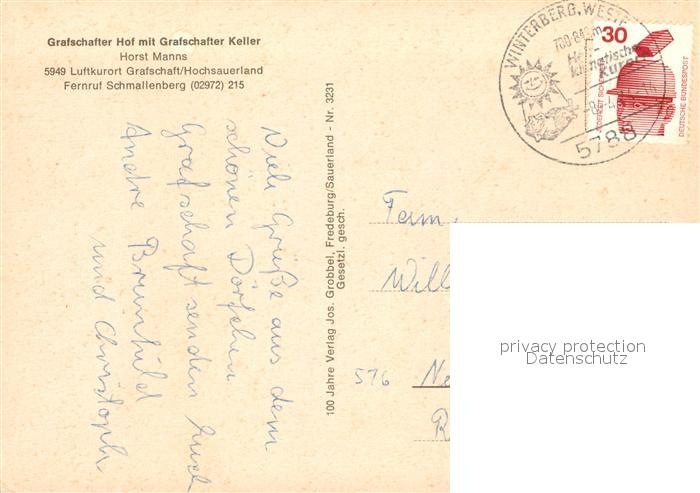 Grafschafter Hof mit Grafschafter Keller
Horst Manns
5949 Luftkurort Grafschaft/Hochsauerland
Fernruf Schmallenberg (02972) 215
Viele Grüße aus dem
schönen Dörfchen
Grafschaft senden Euch
Andre Brunhild
und Christoph
100 Jahre Verlag Jos. Grobbel, Fredeburg/Sauerland - Nr. 3231
Gesetzl. gesch.
WINTERBERG, WESTF
700-842 m
Heil-
klimatischer
Kurort
5788
30
JEDERZEIT SICHERHEIT
DEUTSCHE BUNDESPOST
Fam.
Will
576 Ne
R
privacy protection
Datenschutz